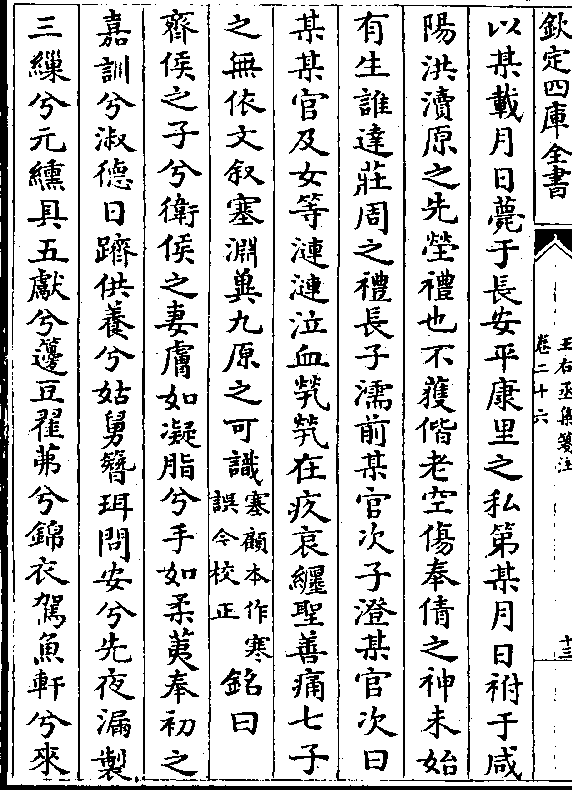 欽定四庫全書
王右丞集箋注
卷二十六
十三
以某載月日薨于長安平康里之私第某月日祔于咸
陽洪瀆原之先塋禮也不獲偕老空傷奉倩之神未始
有生誰達莊周之禮長子濡前某官次子澄某官次曰
某某官及女等漣漣泣血煢煢在疚哀纏聖善痛七子
之無依文叙塞淵冀九原之可識塞顧本作寒誤今校正銘曰
齊侯之子兮衛侯之妻膚如凝脂兮手如柔荑奉初之
嘉訓兮淑德日躋供養兮姑舅簪珥問安兮先夜漏製
三繅兮元纁具五獻兮籩豆翟茀兮錦衣駕魚軒兮來